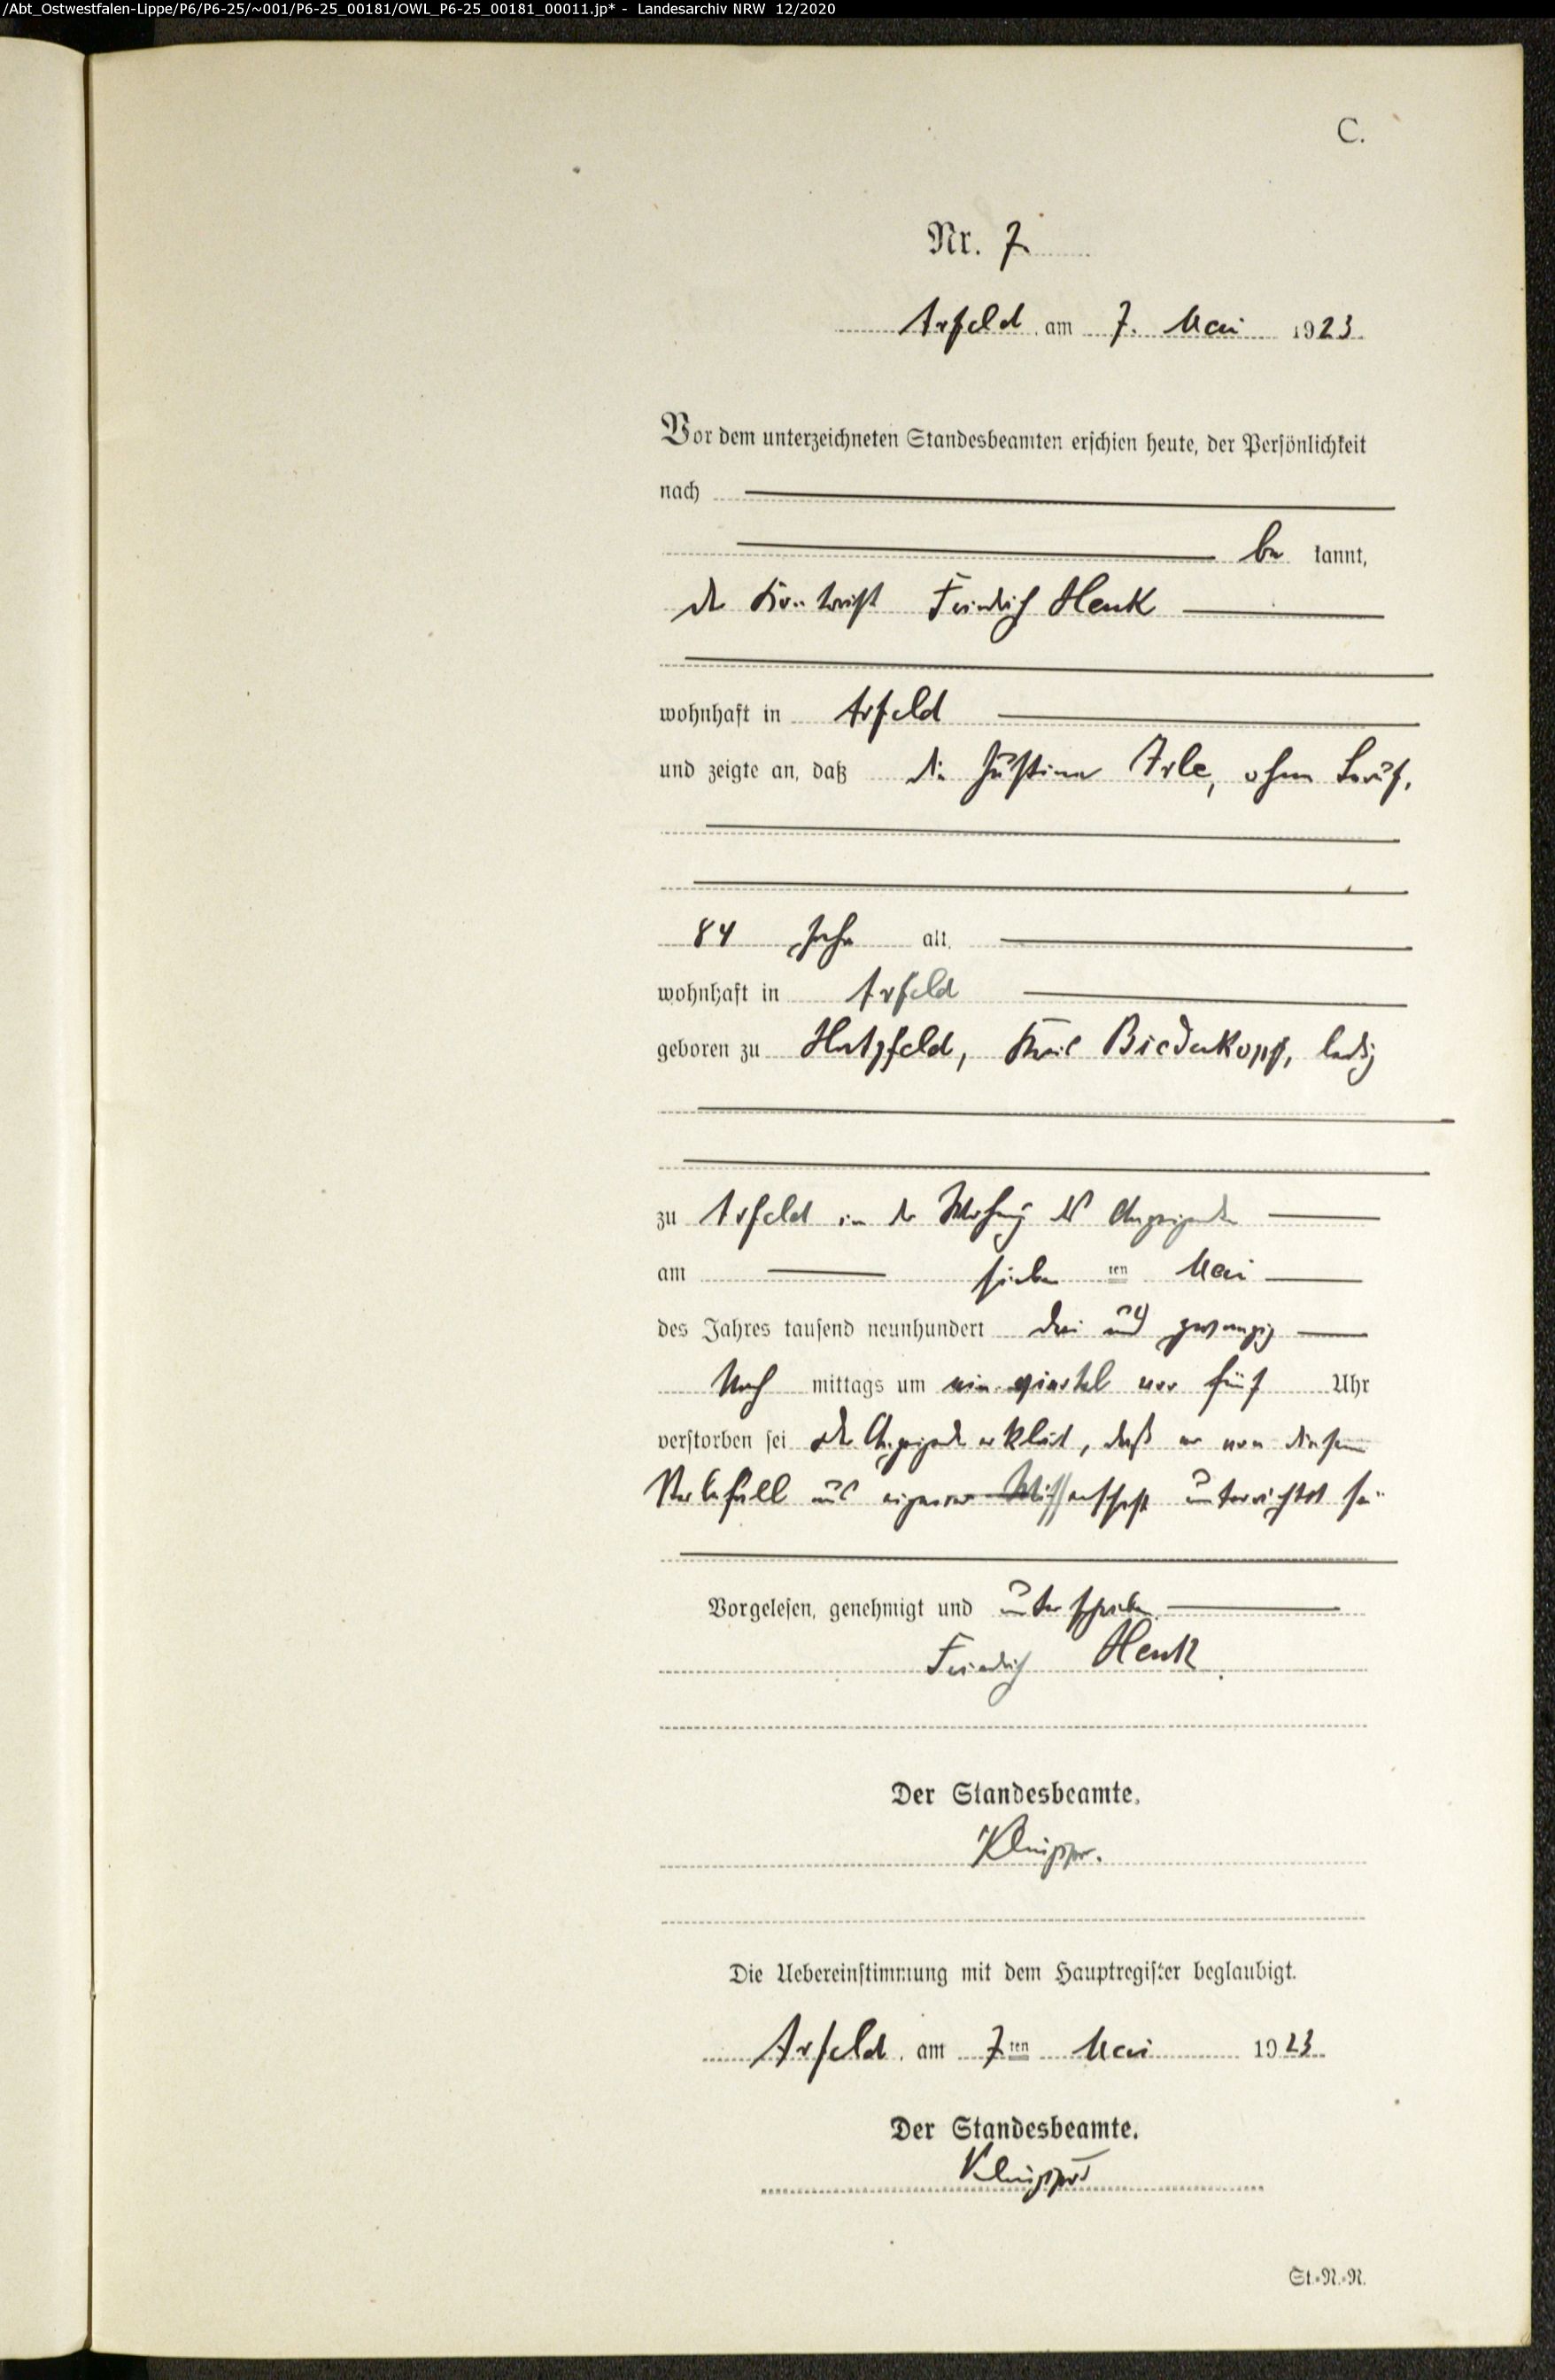 /Abt_Ostwestfalen-Lippe/P6/P6-25/~001/P6-25_00181/OWL_P6-25_00181_00011.jp* - Landesarchiv NRW 12/2020
C.
Nr. 7.
Arfeld am 7. Mai 1923
Vor dem unterzeichneten Standesbeamten erschien heute, der Persönlichkeit
nach
be kannt,
der Friedrich Henk
wohnhaft in Arfeld
und zeigte an, daß die Justine Irle, ohne Beruf,
84 Jahre alt,
wohnhaft in Arfeld
geboren zu Hatzfeld, Kreis Biedenkopf, ledig
zu Arfeld in der Wohnung des Anzeigenden
am sieben ten Mai
des Jahres tausend neunhundert drei und zwanzig
Nach mittags um ein viertel vor fünf Uhr
verstorben sei Der Anzeigende erklärt, daß er von diesem
Sterbefall aus eigener Wissenschaft unterrichtet sei
Vorgelesen, genehmigt und unterschrieben
Friedrich Henk.
Der Standesbeamte.
Die Uebereinstimmung mit dem Hauptregister beglaubigt.
Arfeld, am 7ten Mai 1923
Der Standesbeamte.
St.-N.-N.